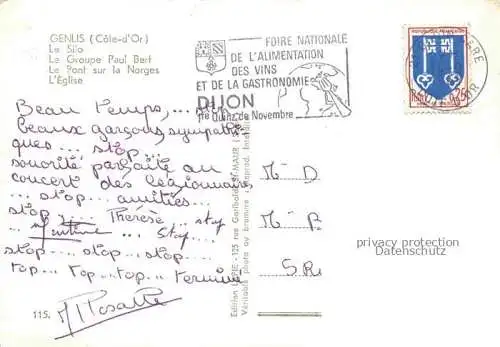 GENLIS (Côte-d'Or)
Le Silo
Le Groupe Paul Bert
Le Pont sur la Norges
L'Église
FOIRE NATIONALE
DE L'ALIMENTATION
DES VINS
ET DE LA GASTRONOMIE
DIJON
1re Quinz. de Novembre
REPUBLIQUE FRANÇAISE
0,25
Beau temps, ...
beaux garçons, sympathi-
ques ... stop ...
sonorité parfaite au
concert des légionnaires
... stop ... amitiés ...
stop ... Thérèse ... stop
... stop ...
stop ... stop ... stop ...
top ... top ... top ... terminé
M D
M P
S R
privacy protection
Datenschutz
Edition LAPIE - 125 rue Garibaldi - ST-MAUR
Véritable photo au bromure
115.